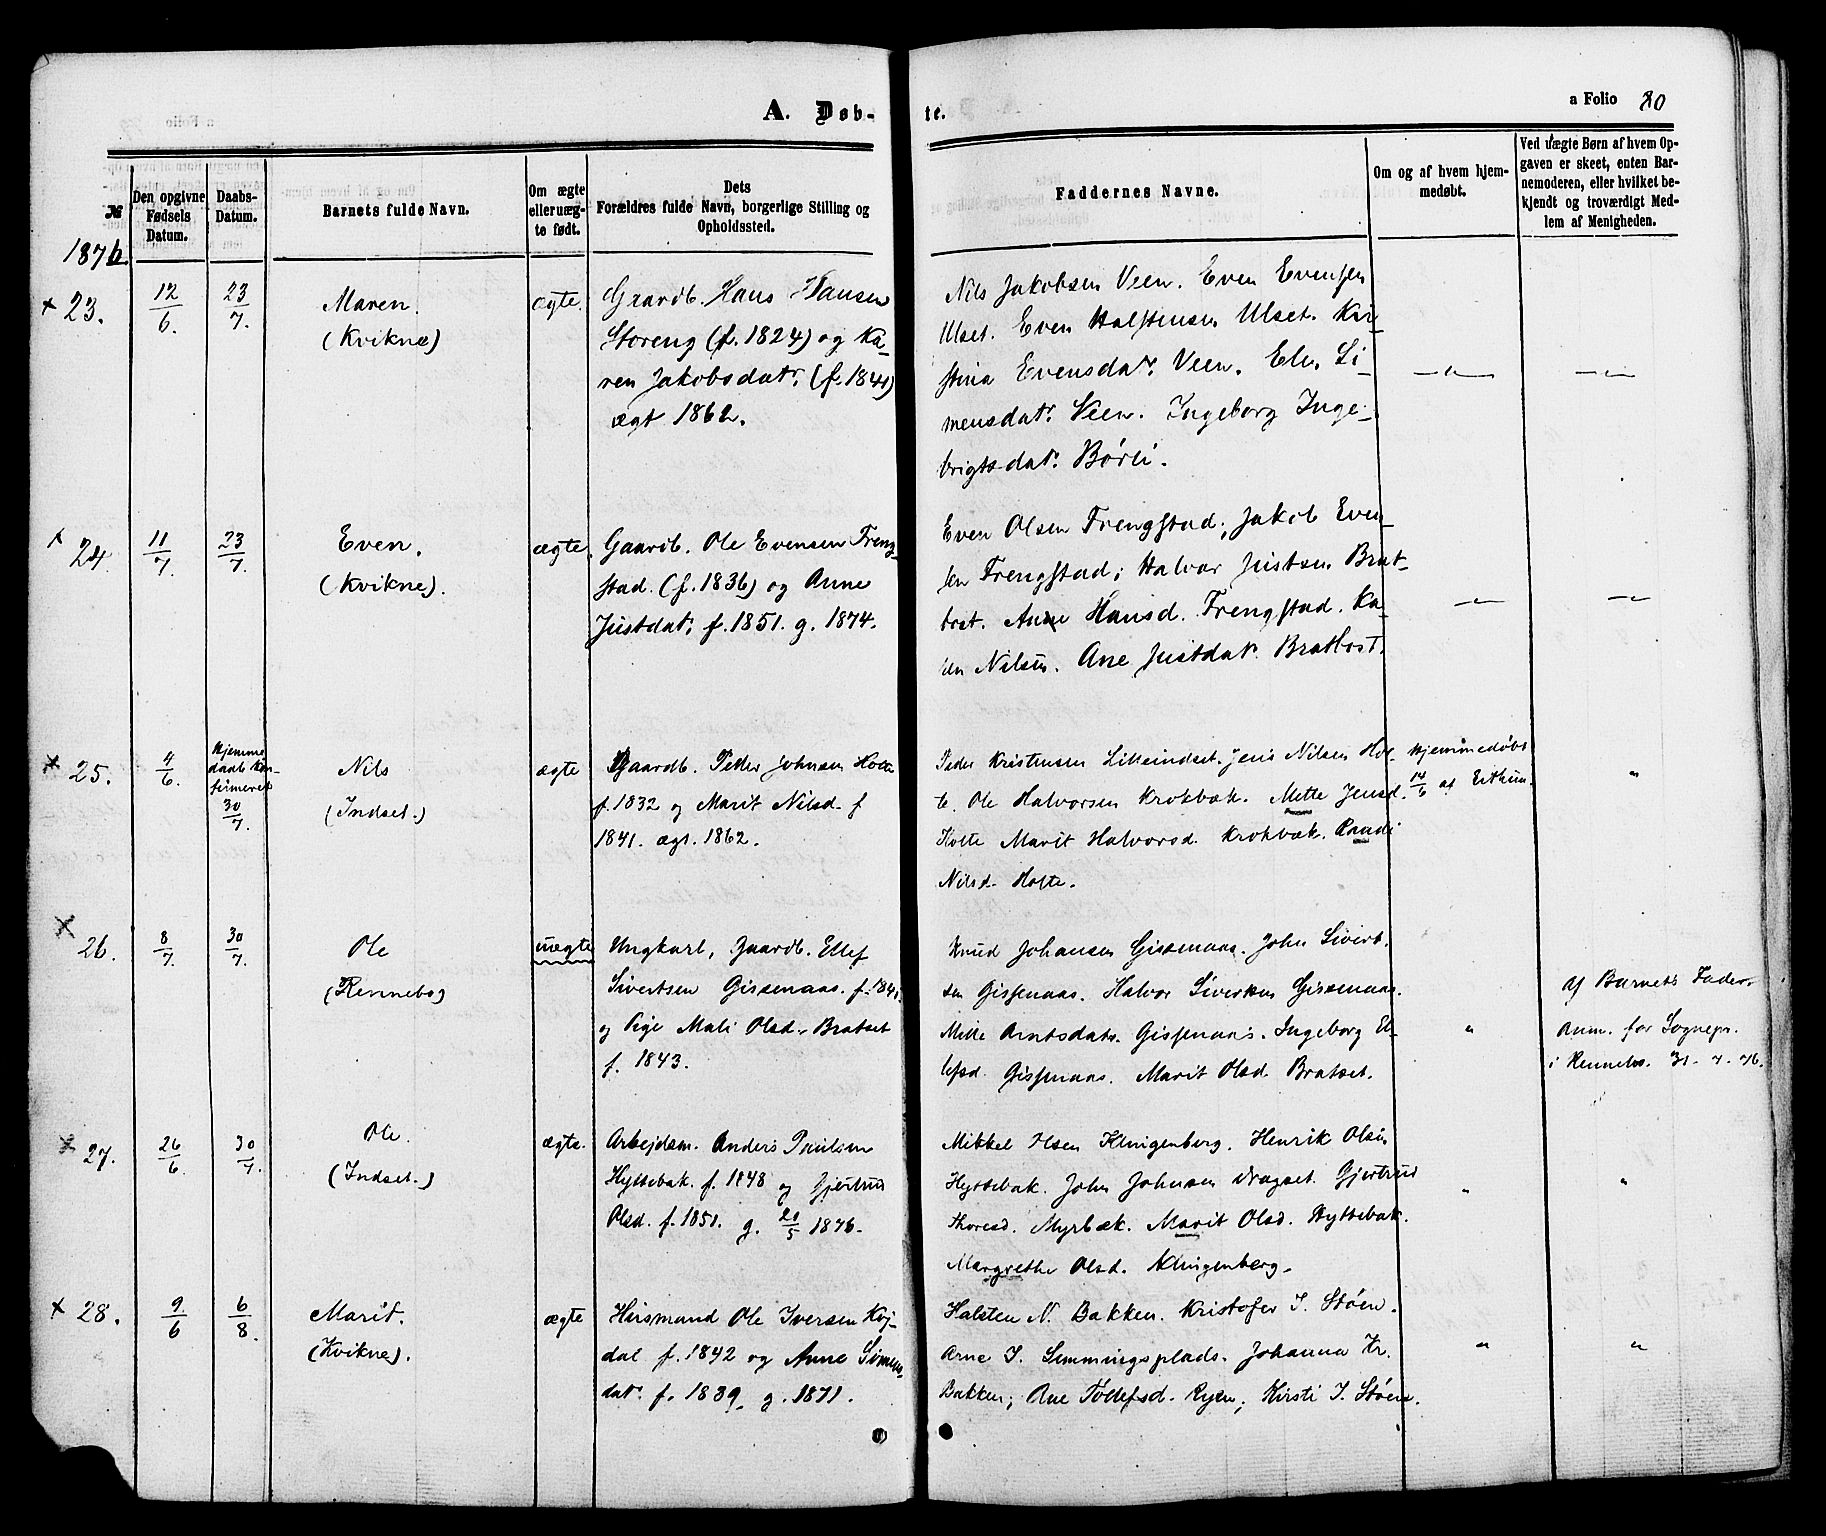 A. Døb-
te.
a Folio 80
№
Den opgivne Fødsels Datum.
Daabs-Datum.
Barnets fulde Navn.
Om ægte eller uægte født.
Dets Forældres fulde Navn, borgerlige Stilling og Opholdssted.
Faddernes Navne.
Om og af hvem hjemmedøbt.
Ved uægte Børn af hvem Opgaven er skeet, enten Barnemoderen, eller hvilket bekjendt og troværdigt Medlem af Menigheden.
1876
× 23.
12/6.
23/7.
Maren.
(Kvikne)
ægte.
Graardb. Hans Hansen
Storeng (f. 1824) og Ka-
ren Jakobsdatr. (f. 1841)
ægt 1862.
Nils Jakobsen Veen. Even Evensen
Ulset. Even Halstensen Ulset. Kir-
stina Evensdatr. Veen. Eli Si-
mensdatr. Veen. Ingeborg Inge-
brigtsdatr. Børli.
× 24.
11/7.
23/7.
Even.
(Kvikne).
ægte.
Gaardb. Ole Evensen Freng-
stad. (f. 1836) og Anne
Justdatr. f. 1851. g. 1874.
Even Olsen Frengstad; Jakob Even-
sen Frengstad; Halvor Justsen Brat-
tost. Anne Hansd. Frengstad. Ka-
ren Nilsen. Ane Justdatr. Brattost.
× 25.
4/6.
Hjemme
daab kon-
firmeret
30/7.
Nils
(Indset.)
ægte
Gaardb. Peder Johnsen Holte
f. 1832 og Marit Nilsd. f
1841. ægt. 1862.
Peder Kristensen Lilleindset. Jens Nilsen Hol-
te. Ole Halvorsen Krokbæk. Mette Jensd.
Holte Marit Halvorsd. Krokbæk. Randi
Nilsd. Holte.
Hjemmedøbt
14/6 af
"
× 26.
8/7.
30/7.
Ole
(Rennebo)
uægte
Ungkarl, Gaardb. Ellef
Sivertsen Gissenaas. f. 1841
og Pige Mali Olsd. Bratset
f. 1843.
Knud Johansen Gissenaas. John Sivert-
sen Gissenaas. Halvor Sivertsen Gissenaas.
Mette Arntsdatr. Gissenaas. Ingeborg El-
lefsd. Gissenaas. Marit Olsd. Bratset.
"
Af Barnets Fader.
Anm. for Sognepr.
i Rennebo. 31-7-76.
× 27.
26/6.
30/7.
Ole.
(Indset.)
ægte.
Arbejdsm. Anders Paulsen
Hyttebak. f. 1848 og Gjertrud
Olsd. f. 1851. g. 20/5 1876.
Mikkel Olsen Klingenberg. Henrik Olsen
Hyttebak. John Johnsen Dragset. Gjertrud
Thoresd. Myrbæk. Marit Olsd. Hyttebak.
Margrethe Olsd. Klingenberg.
"
"
× 28.
9/6
6/8.
Marit.
(Kvikne).
ægte
Husmand Ole Iversen Koj-
dal f. 1842 og Anne Simens-
datr. f. 1839. g. 1871.
Halsten N. Bakken. Kristofer I. Støen.
Arne I. Semmingsplads. Johanna Kr.
Bakken; Ane Tollefsd. Ryen; Kirsti I. Støen.
"
"